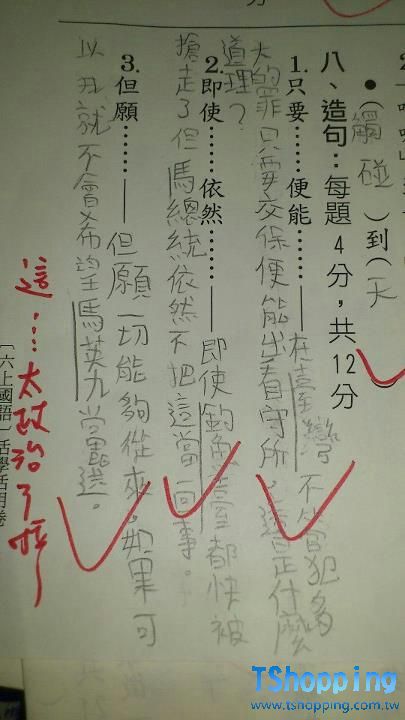 ●(觸碰)到(天
八、造句：每題4分，共12分
1.只要……便能……——在臺灣不管犯多
大的罪只要交保便能出看守所，這是什麼
道理？
2.即使……依然……——即使釣魚臺都快被
搶走了但馬總統依然不把這當一回事。
3.但願……——但願一切能夠從來，如果可
以就不會希望馬英九當選。
這…太政治了啦
〔六上國語〕活學活用卷
TShopping
www.tshopping.com.tw